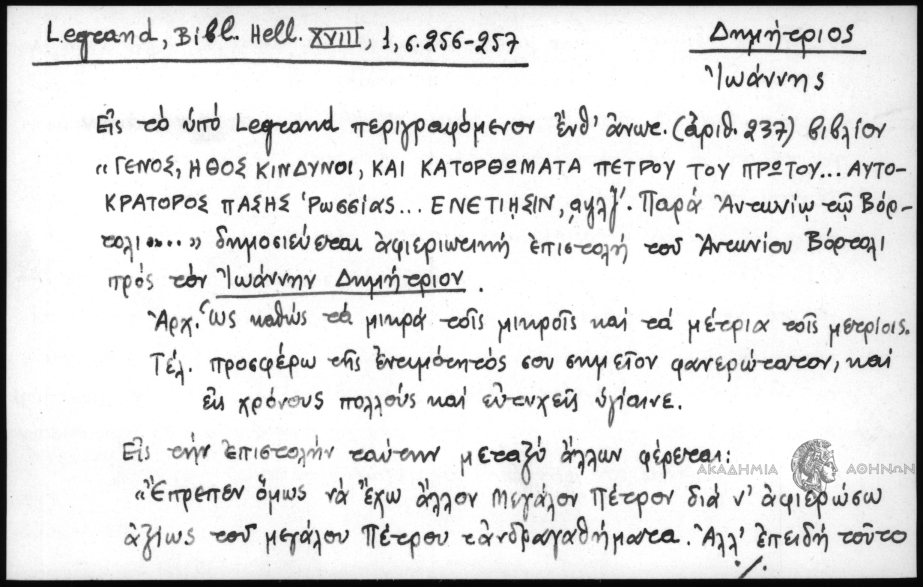 Legrand, Bibl. Hell. XVIII, 1, σ. 256-257
Δημήτριος
Ἰωάννης
Εἰς τὸ ὑπό Legrand περιγραφόμενον ἔνθ' ἀνωτ. (ἀριθ. 237) βιβλίον
«ΓΕΝΟΣ, ΗΘΟΣ ΚΙΝΔΥΝΟΙ, ΚΑΙ ΚΑΤΟΡΘΩΜΑΤΑ ΠΕΤΡΟΥ ΤΟΥ ΠΡΩΤΟΥ... ΑΥΤΟ-
ΚΡΑΤΟΡΟΣ ΠΑΣΗΣ Ῥωσσίας... ΕΝΕΤΙΗΣΙΝ, ͵αψλζʹ. Παρά Ἀντωνίῳ τῷ Βόρ-
τολι»...» δημοσιεύεται ἀφιερωτική ἐπιστολή τοῦ Ἀντωνίου Βόρτολι
πρός τόν Ἰωάννην Δημήτριον.
Ἀρχ. Ὡς καθώς τά μικρά τοῖς μικροῖς καί τά μέτρια τοῖς μετρίοις.
Τέλ. προσφέρω τῆς ἐντιμότητός σου σημεῖον φανερώτατον, καί
εἰς χρόνους πολλούς καί εὐτυχεῖς ὑγίαινε.
Εἰς τήν ἐπιστολήν ταύτην μεταξύ ἄλλων φέρεται:
ΑΚΑΔΗΜΙΑ ΑΘΗΝΩΝ
«Ἔπρεπεν ὅμως νά ἔχω ἄλλον Μεγάλον Πέτρον διά ν' ἀφιερώσω
ἀξίως τοῦ μεγάλου Πέτρου τἀνδραγαθήματα. Ἀλλ' ἐπειδή τοῦτο
./.